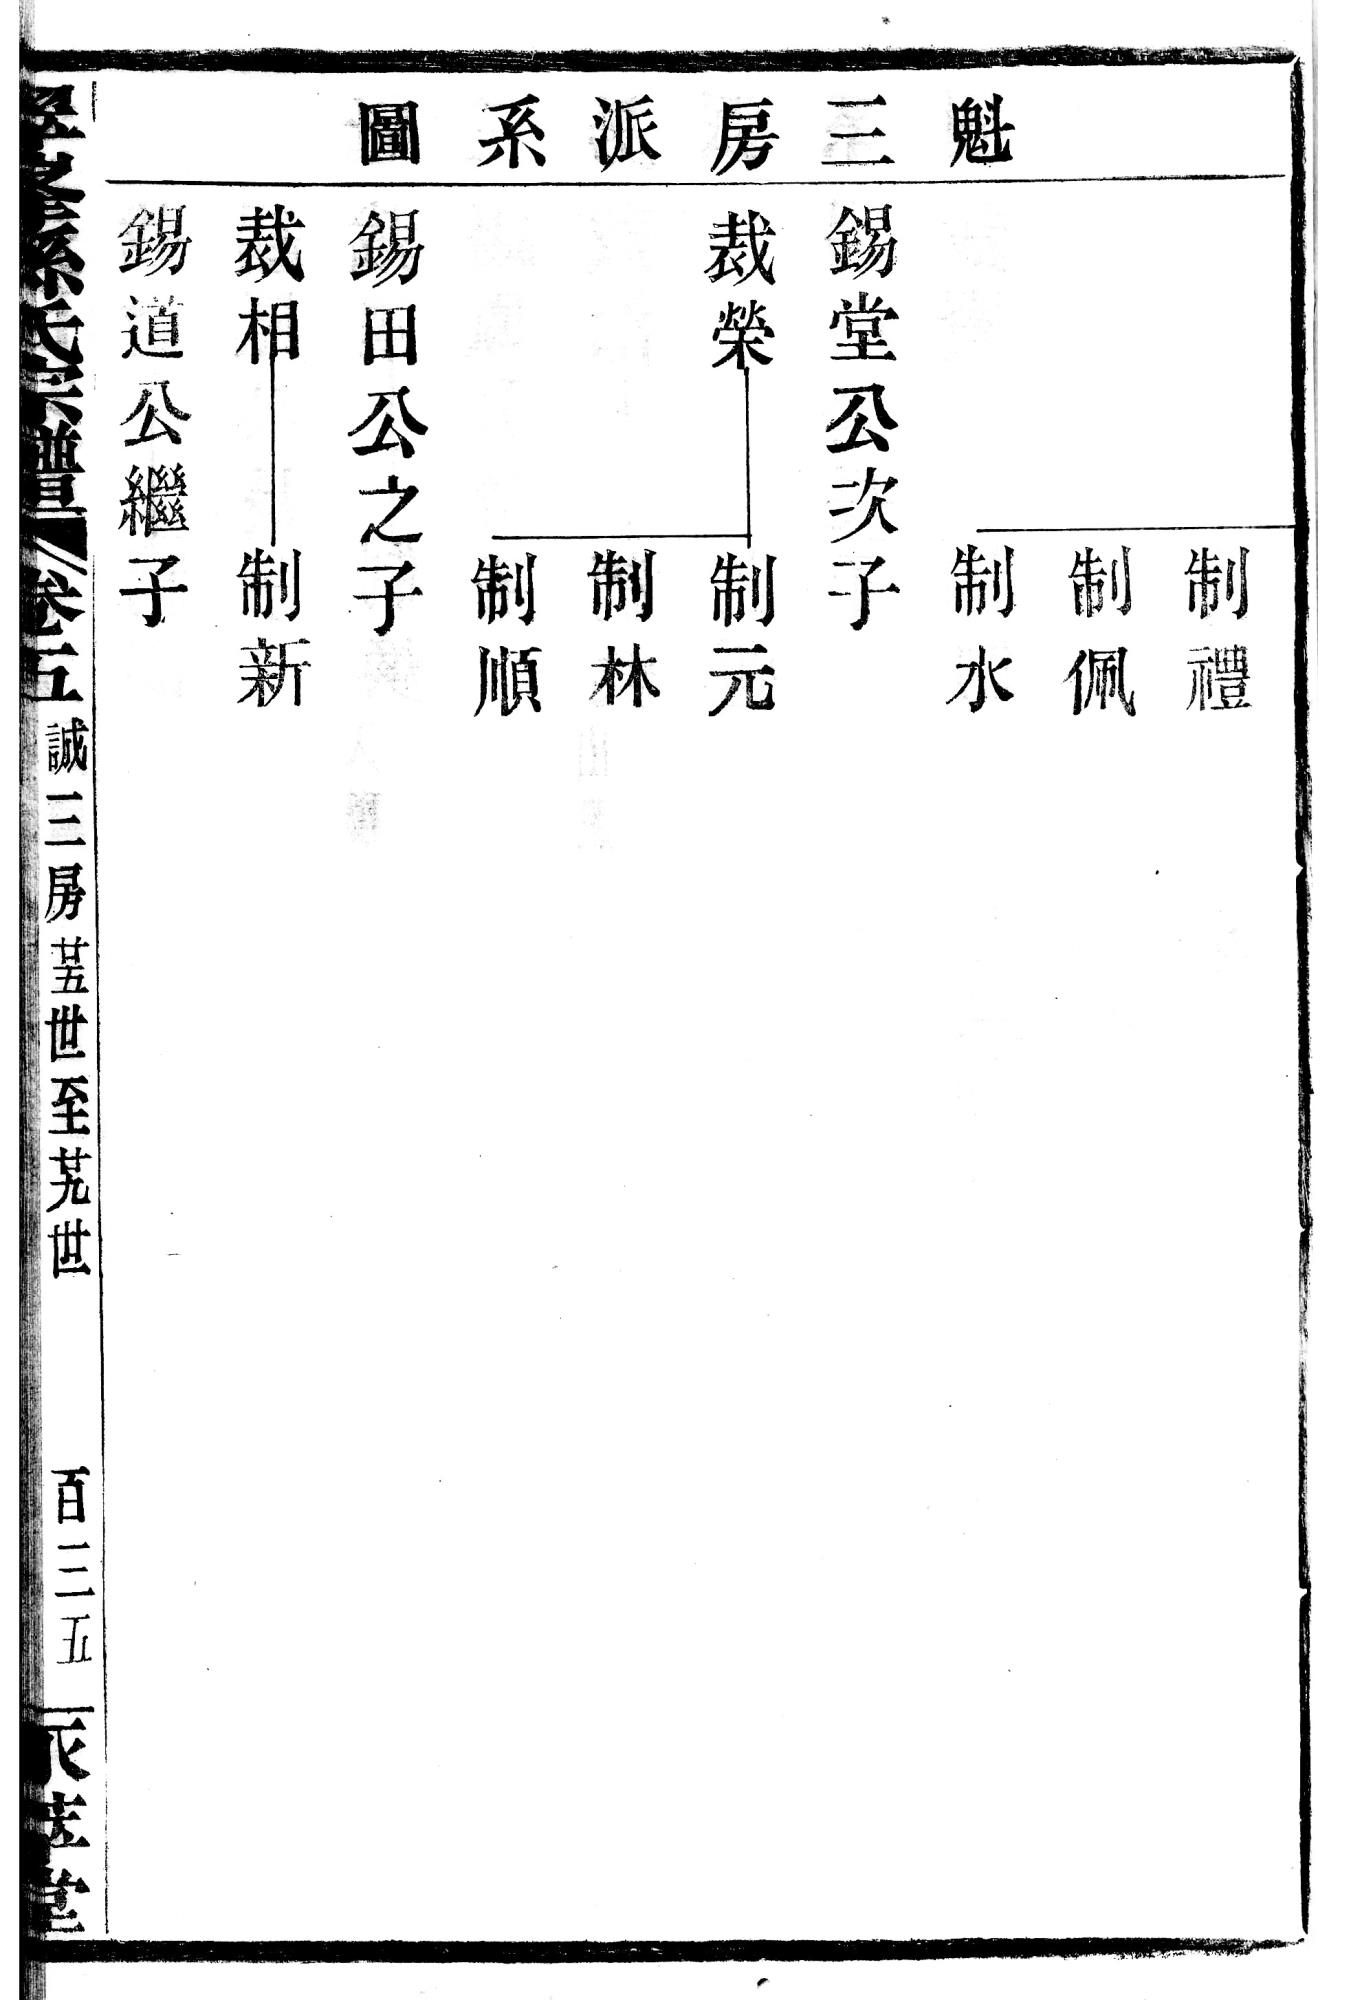 魁三房派系圖
制禮
制佩
制水
錫堂公次子
裁榮
制元
制林
制順
錫田公之子
裁相
制新
錫道公繼子
孫氏宗譜
卷五
誠三房
廿五世至廿九世
百三五
堂